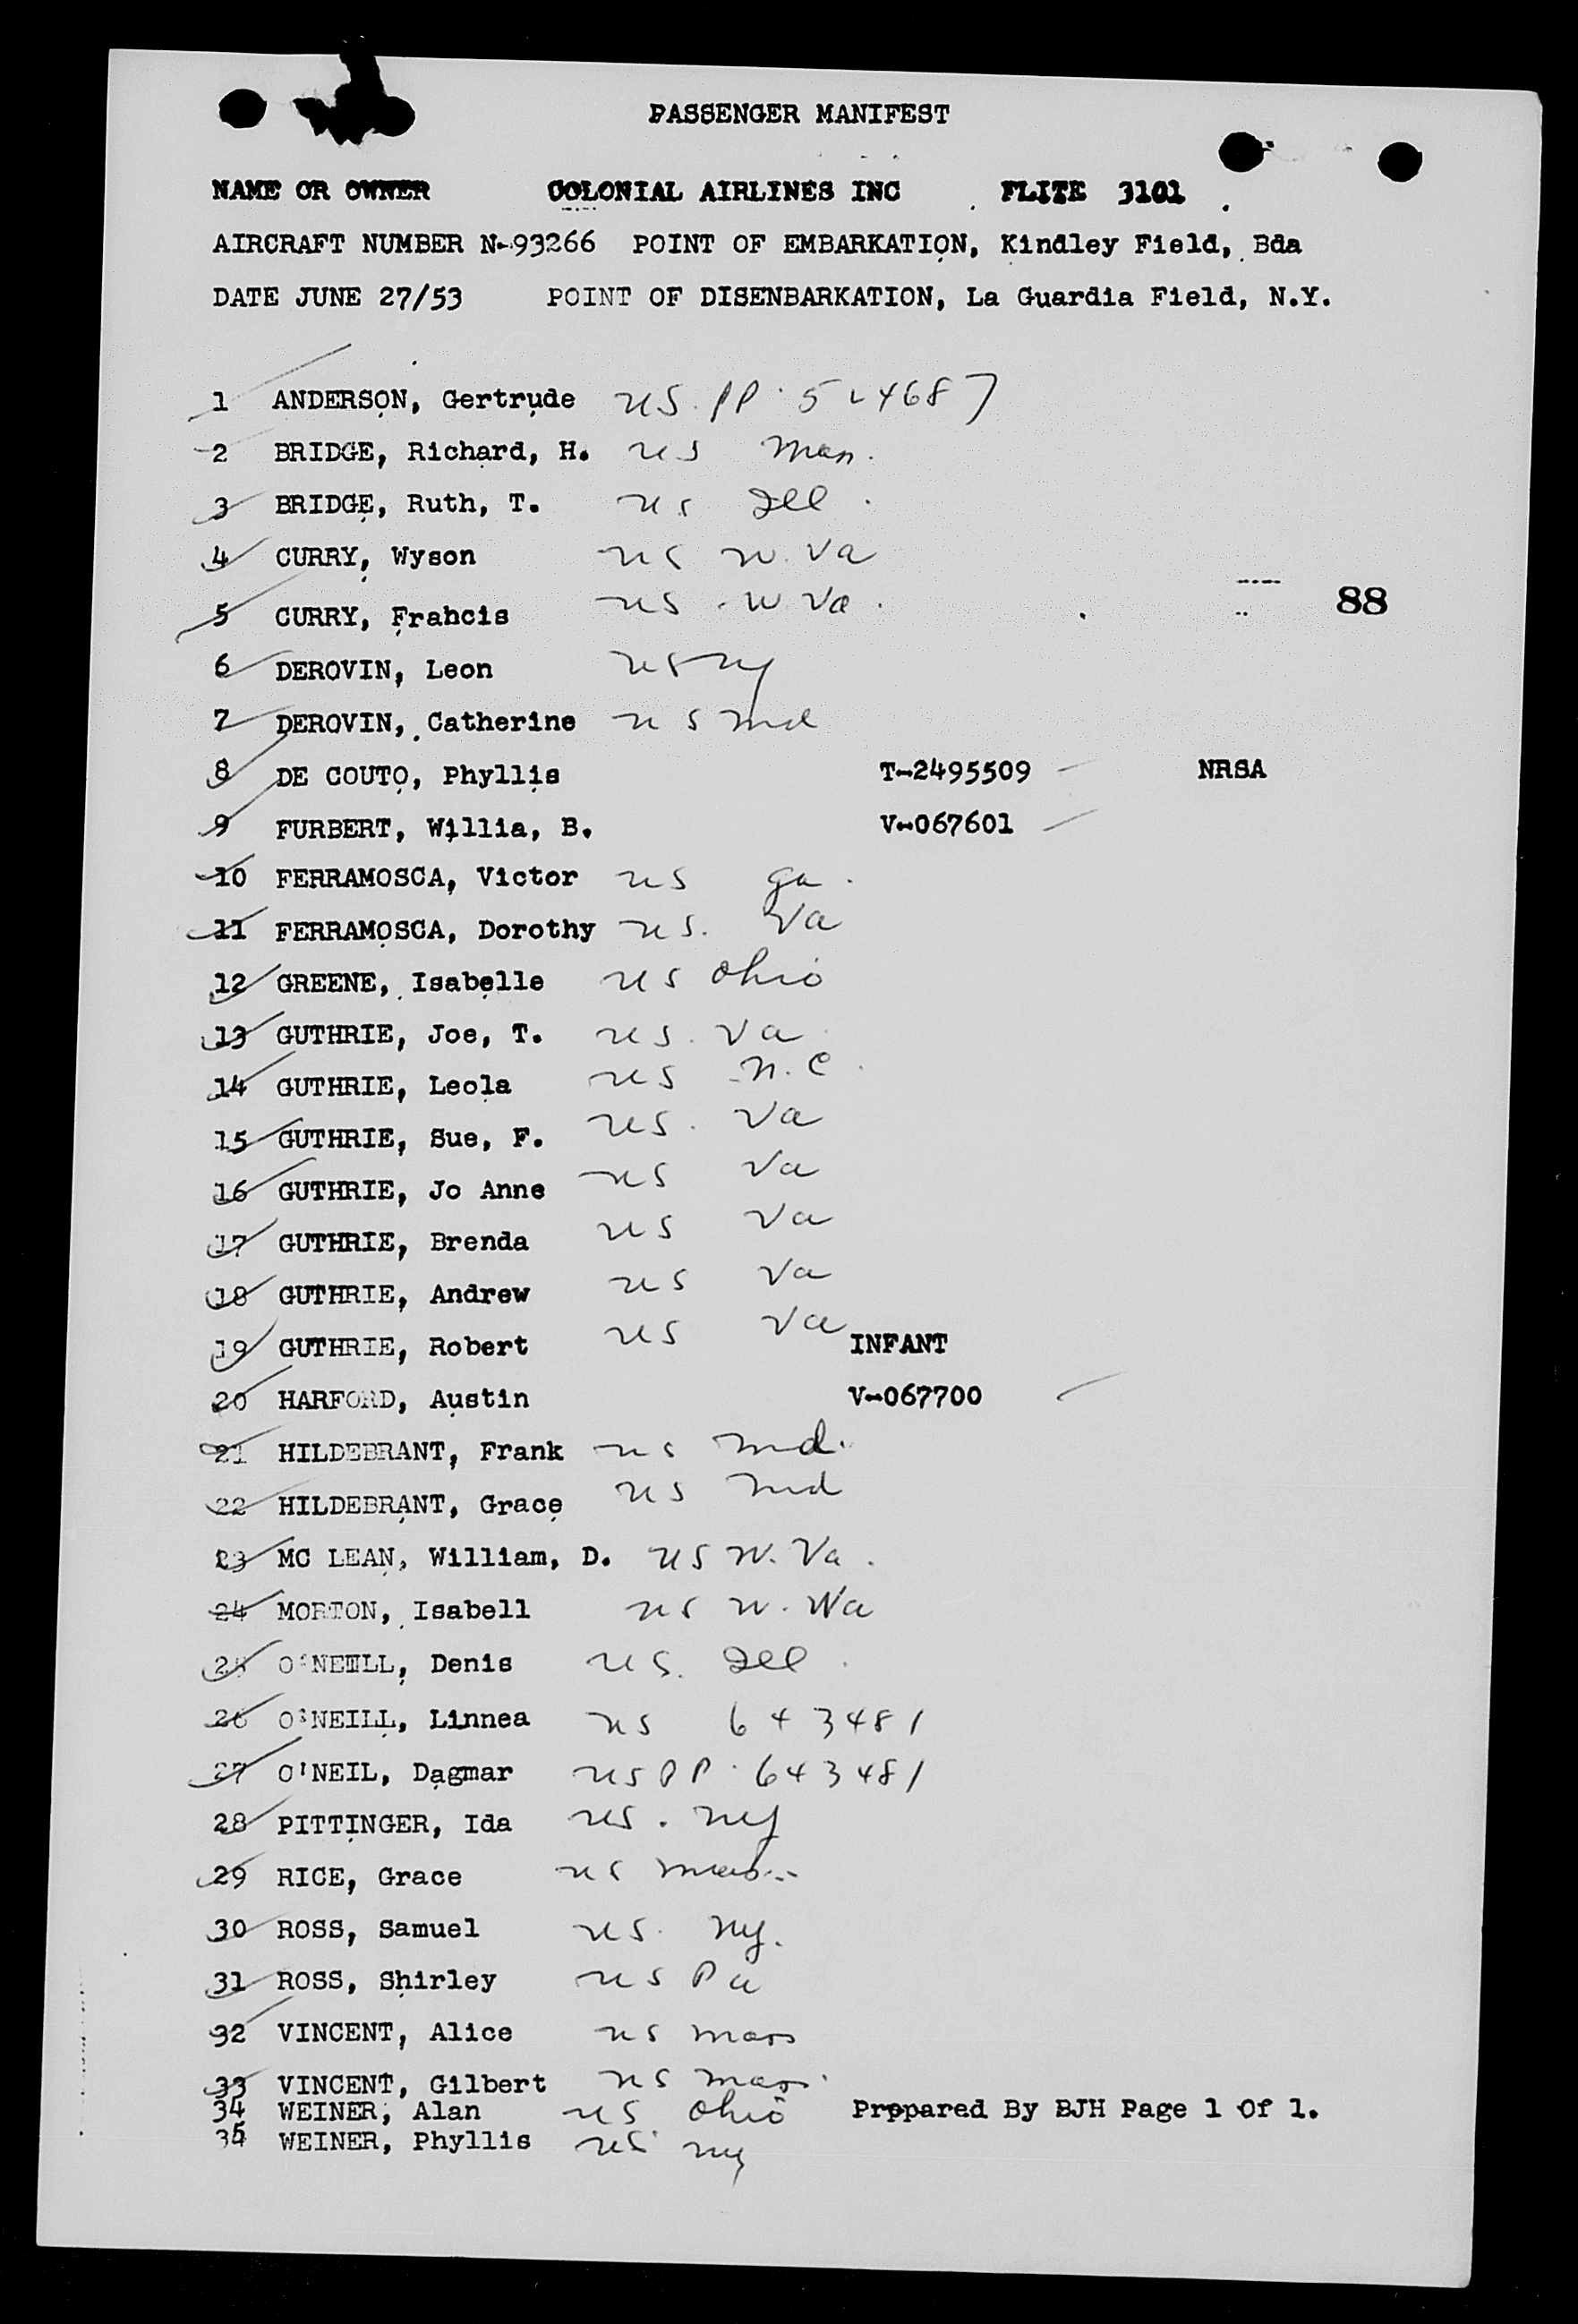 PASSENGER MANIFEST
NAME OR OWNER COLONIAL AIRLINES INC FLITE 3101
AIRCRAFT NUMBER N-93266 POINT OF EMBARKATION, Kindley Field, Bda
DATE JUNE 27/53 POINT OF DISENBARKATION, La Guardia Field, N.Y.
1 ANDERSON, Gertrude US. PP. 524687
2 BRIDGE, Richard, H. US Mass.
3 BRIDGE, Ruth, T. US Ill.
4 CURRY, Wyson US W. Va
5 CURRY, Frahcis US W Va. 88
6 DEROVIN, Leon US NY
7 DEROVIN, Catherine US Md
8 DE COUTO, Phyllis T-2495509 NRSA
9 FURBERT, Willia, B. V-067601
10 FERRAMOSCA, Victor US Ga.
11 FERRAMOSCA, Dorothy US. Va
12 GREENE, Isabelle US Ohio
13 GUTHRIE, Joe, T. US. Va
14 GUTHRIE, Leola US N.C.
15 GUTHRIE, Sue, F. US. Va
16 GUTHRIE, Jo Anne US Va
17 GUTHRIE, Brenda US Va
18 GUTHRIE, Andrew US Va
19 GUTHRIE, Robert US Va INFANT
20 HARFORD, Austin V-067700
21 HILDEBRANT, Frank US Md.
22 HILDEBRANT, Grace US Md
23 MC LEAN, William, D. US W. Va.
24 MORTON, Isabell US W. Wa
25 O'NEILL, Denis US. Ill.
26 O'NEILL, Linnea US 643481
27 O'NEIL, Dagmar US PP. 643481
28 PITTINGER, Ida US. NY
29 RICE, Grace US Mass.
30 ROSS, Samuel US. NY.
31 ROSS, Shirley US Pa
32 VINCENT, Alice US Mass
33 VINCENT, Gilbert US Mass.
34 WEINER, Alan US Ohio Prppared By BJH Page 1 Of 1.
35 WEINER, Phyllis US NY